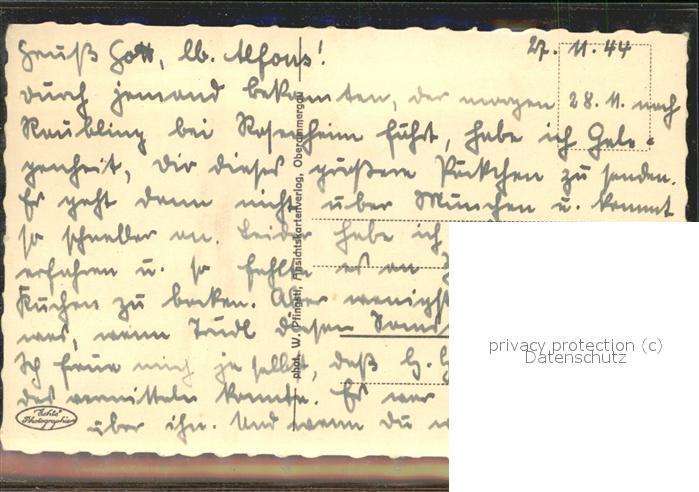 27. 11. 44
Grüß Gott, lb. Alfons!
Durch jemand bekannten, der morgen 28. 11. nach
Raubling bei Rosenheim fährt, habe ich Gele-
genheit, Dir dieses größere Päckchen zu senden.
Es geht dann nicht über München u. kommt
so schneller an. Leider habe ich
erfahren u. so fehlte es an
Kuchen zu backen. Aber wenigst
was, wenn Trudl diesen Sams
Ich freue mich ja selbst, daß
das vermitteln konnte. Es war
über ihn. Und wenn Du
phot. W. Pfingstl, Ansichtskartenverlag, Oberammergau
Echte Photographie
privacy protection (c)
Datenschutz